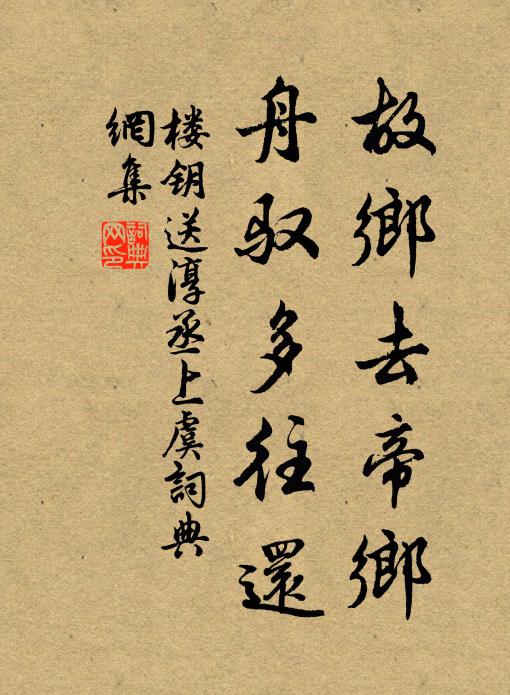 故鄉去帝鄉
舟馭多往還
楼钥送淳丞上虞詞典
網集
詞典
网印